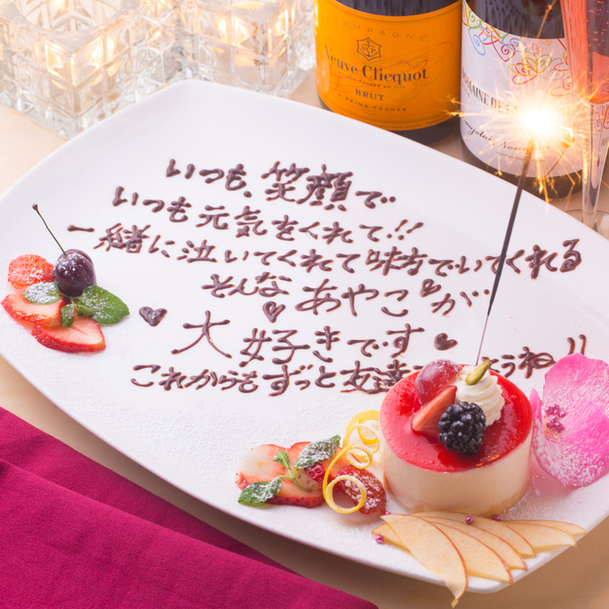 CHAMPAGNE
Veuve Clicquot
BRUT
REIMS FRANCE
DOMAINE DE
いつも、笑顔で
いつも元気をくれて!!
一緒に泣いてくれて味方でいてくれる
そんなあやこが…
大好きです
これからもずっと友達 うね!!